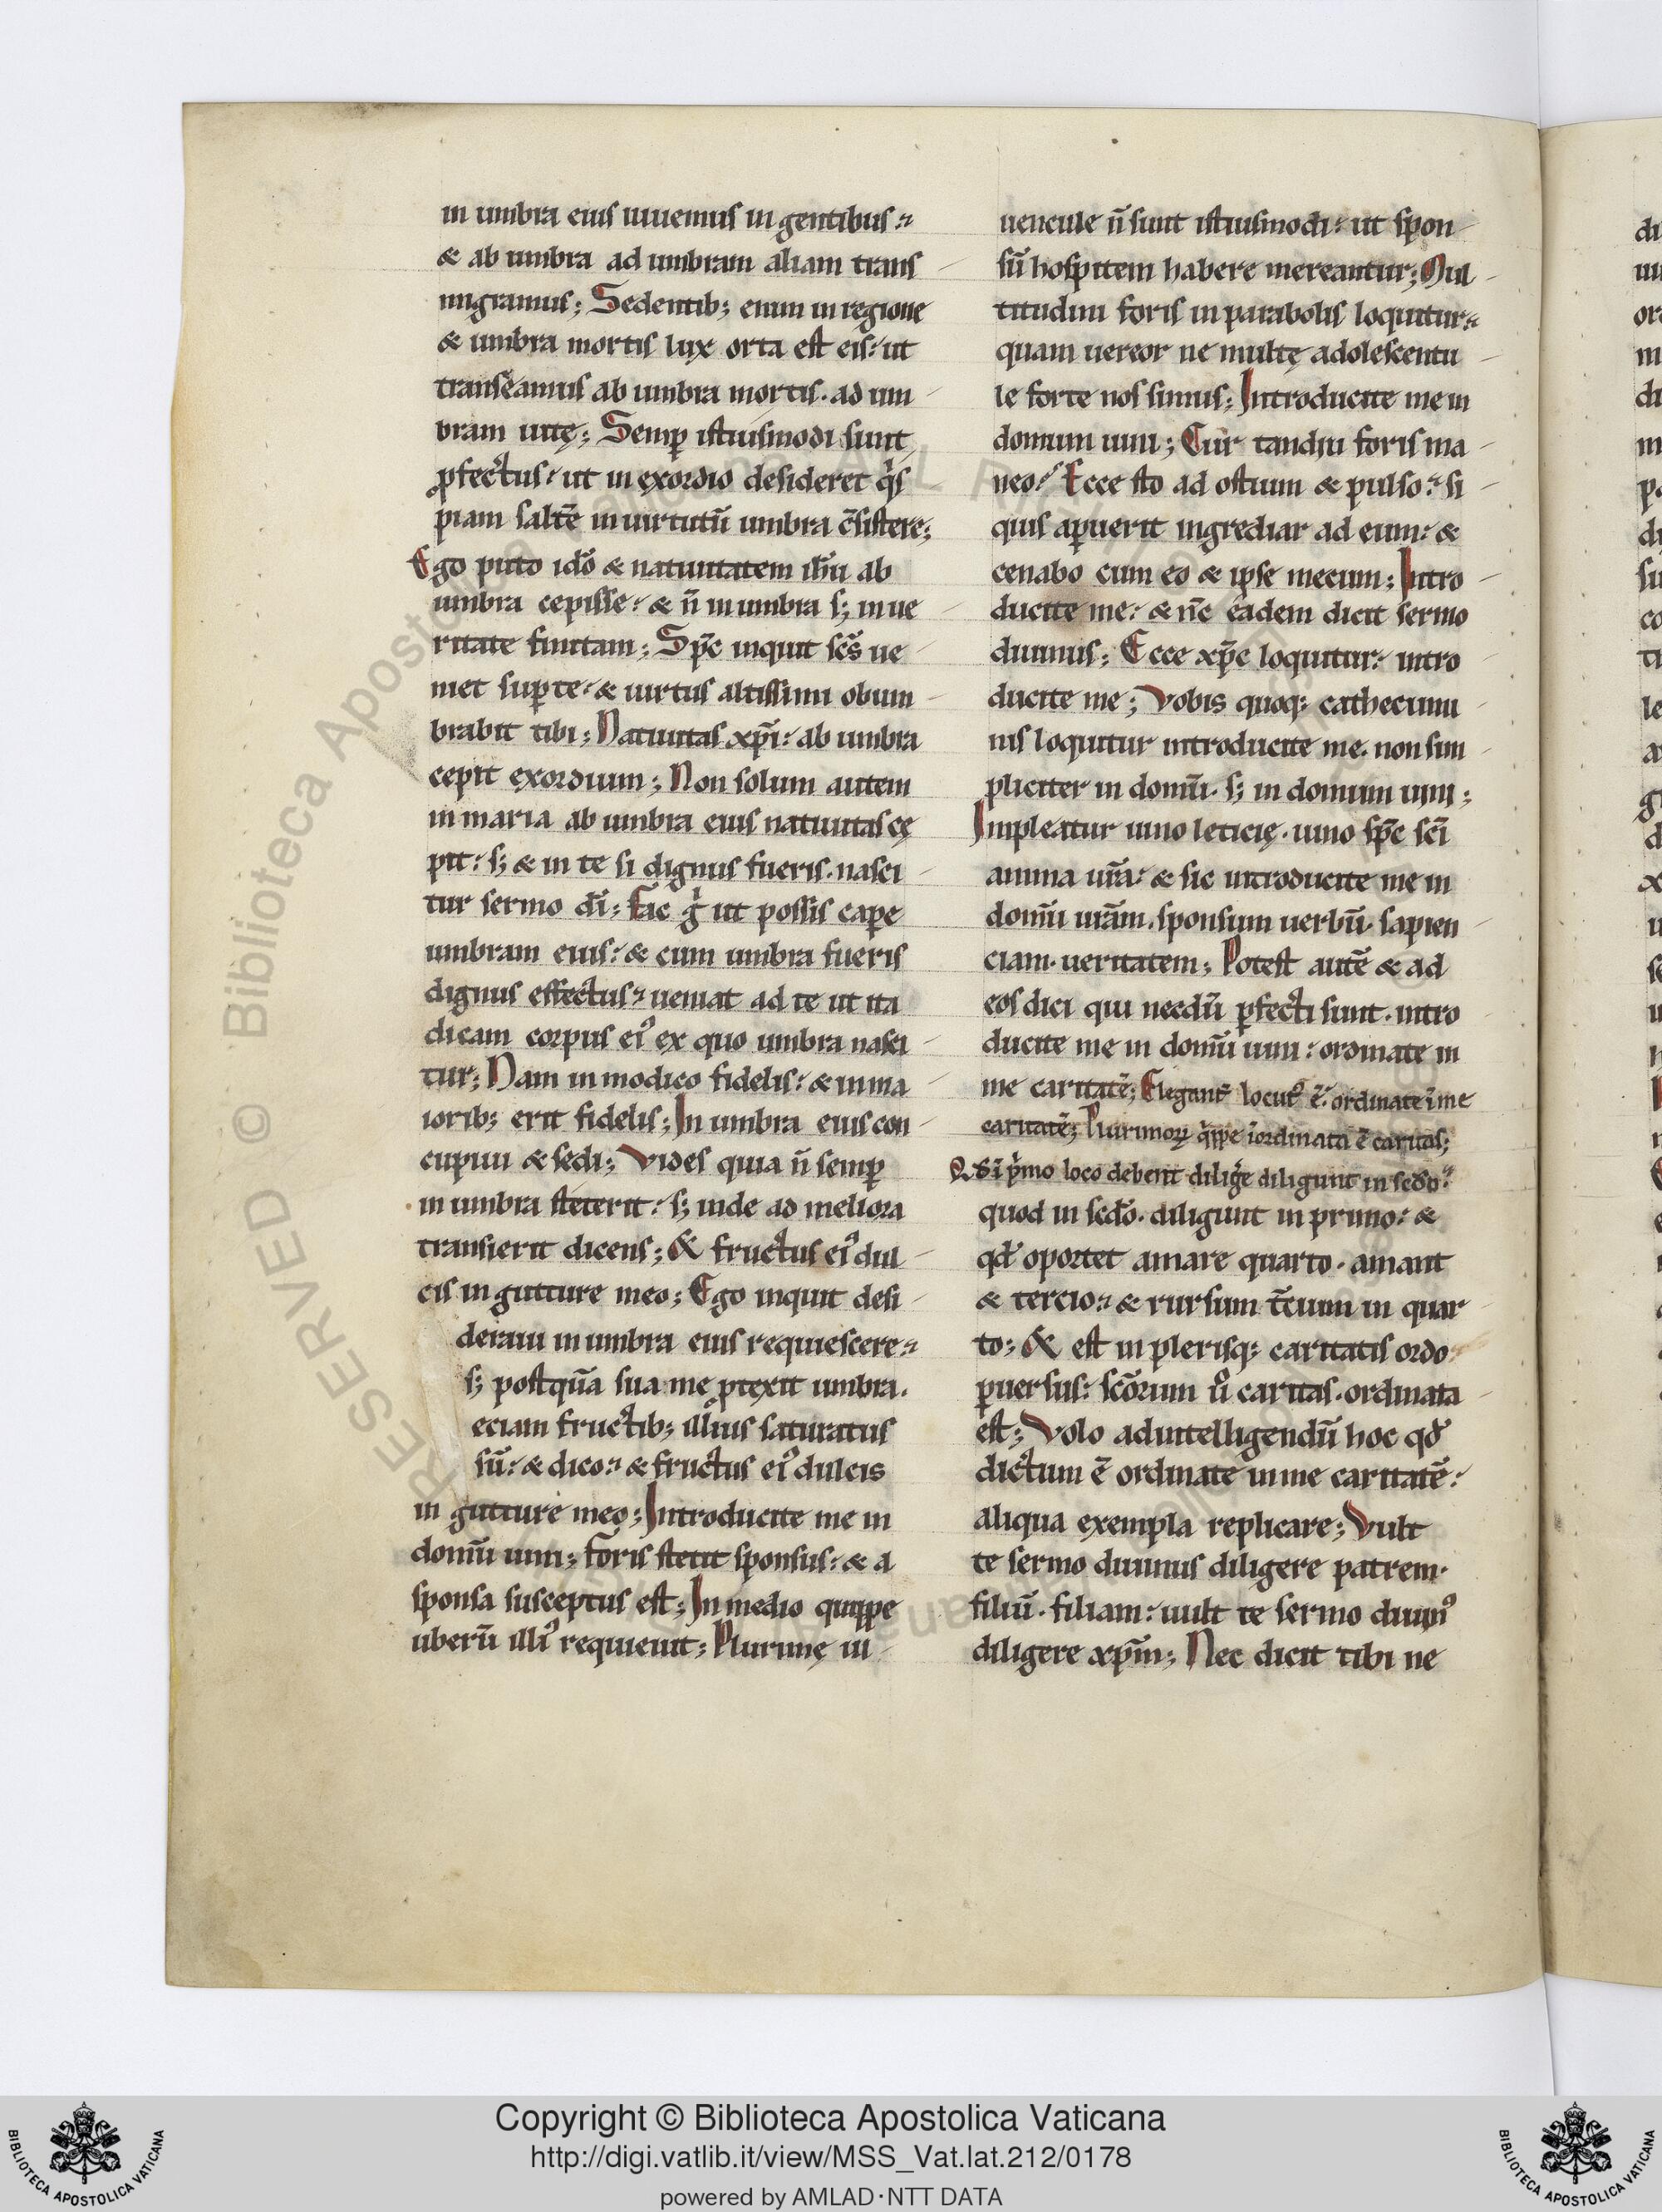 in umbra eius uiuemus in gentibus⹎
& ab umbra ad umbram aliam trans
migramus; Sedentib; enim in regione
& umbra mortis lux orta est eis: ut
transeamus ab umbra mortis. ad um
bram uitę; Semꝑ istiusmodi sunt
ꝓfectus: ut in exordio desideret qͥs
piam saltē in uirtutū umbra c̄sistere;
Ego puto idō & natiuitatem ihū ab
umbra cepisse: & n̄ in umbra s; in ue
ritate finitam; Sp̄c inquit sc̄s ue
niet suꝑ te: & uirtus altissimi obum
brabit tibi; Natiuitas xp̄i: ab umbra
cepit exordium; Non solum autem
in maria ab umbra eius natiuitas cę
pit: s; & in te si dignus fueris. nasci
tur sermo dī; Fac gͦ ut possis caꝑe
umbram eius: & cum umbra fueris
dignus effectus: ueniat ad te ut ita
dicam corpus eiꝰ ex quo umbra nasci
tur; Nam in modico fidelis: & in ma
iorib; erit fidelis; In umbra eius con
cupiui & sedi; Vides quia n̄ semꝑ
in umbra steterit: s; inde ad meliora
transierit dicens; & fructus eiꝰ dul
cis in gutture meo; Ego inquit desi
deraui in umbra eius requiescere:
s; postquā sua me ꝓtexit umbra.
eciam fructib; illius saturatus
sū: & dico: & fructus eiꝰ dulcis
in gutture meo; Introducite me in
domū uini; Foris stetit sponsus: & a
sponsa susceptus est; In medio quippe
uberū illiꝰ requieuit; Plurimę iu
uencule n̄ sunt istiusmodi: ut spon
sū hospitem habere mereantur; Mul
titudini foris in parabolis loquitur:
quam uereor ne multę adolescentu
le forte nos simus; Introducite me in
domum uini; Cur tandiu foris ma
neo? Ecce sto ad ostium & pulso: si
quis aperuerit ingrediar ad eum: &
cenabo cum eo & ipse mecum; Intro
ducite me: & nc̄ eadem dicit sermo
diuinus; Ecce xp̄c loquitur: intro
ducite me; Vobis quoq; cathecumi
nis loquitur introducite me. non sim
pliciter in domū. s; in domum uini;
Impleatur uino leticię. uino sp̄c sc̄i
anima ur̄a: & sic introducite me in
domū urām. sponsum uerbū. sapien
ciam. ueritatem; Potest autē & ad
eos dici qui necdū ꝑfecti sunt. intro
ducite me in domū uini: ordinate in
me caritatē; Eleganť locutꝰ ē: ordinate ī me
caritatē; Plurimoꝝ qͥppe īordinata ē caritas;
Qd̄ ī pͥmo loco debent diligͤe diligunt in sc̄do:
quod in sc̄do. diligunt in primo: &
qd̄ oportet amare quarto. amant
& tercio: & rursum tc̄ium in quar
to; & est in plerisq; caritatis ordo
ꝑuersus: sc̄orum uͦ caritas. ordinata
est; Volo ad intelligendū hoc qd̄
dictum ē ordinate in me caritatē:
aliqua exempla replicare; Vult
te sermo diuinus diligere patrem.
filiū. filiam: uult te sermo diuinꝰ
diligere xp̄m; Nec dicit tibi ne
Copyright © Biblioteca Apostolica Vaticana
http://digi.vatlib.it/view/MSS_Vat.lat.212/0178
powered by AMLAD·NTT DATA
BIBLIOTECA APOSTOLICA VATICANA
BIBLIOTECA APOSTOLICA VATICANA